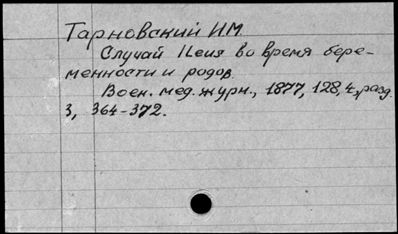 Тарновский ИМ
Случай Ileus во время бере-
менности и родов.
Воен. мед. журн., 1877, 128, 4, разд.
3, 364-372.